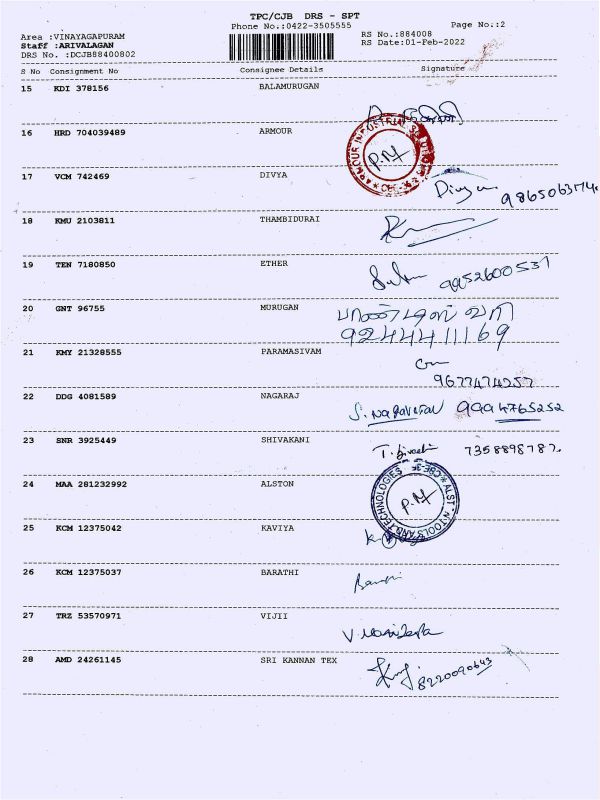 TPC/CJB DRS - SPT
Phone No.:0422-3505555
Page No.:2
Area :VINAYAGAPURAM
Staff :ARIVALAGAN
DRS No. :DCJB88400802
RS No.:884008
RS Date:01-Feb-2022
S No Consignment No Consignee Details Signature
15 KDI 378156 BALAMURUGAN
16 HRD 704039489 ARMOUR
P.M
17 VCM 742469 DIVYA
Divya
18 KMU 2103811 THAMBIDURAI
19 TEN 7180850 ETHER
9952600531
20 GNT 96755 MURUGAN
9244411169
21 KMY 21328555 PARAMASIVAM
9677474257
22 DDG 4081589 NAGARAJ
S. NAGARAJAN 9994765252
23 SNR 3925449 SHIVAKANI
7358898787.
24 MAA 281232992 ALSTON
P.M
25 KCM 12375042 KAVIYA
26 KCM 12375037 BARATHI
27 TRZ 53570971 VIJII
28 AMD 24261145 SRI KANNAN TEX
8220090643